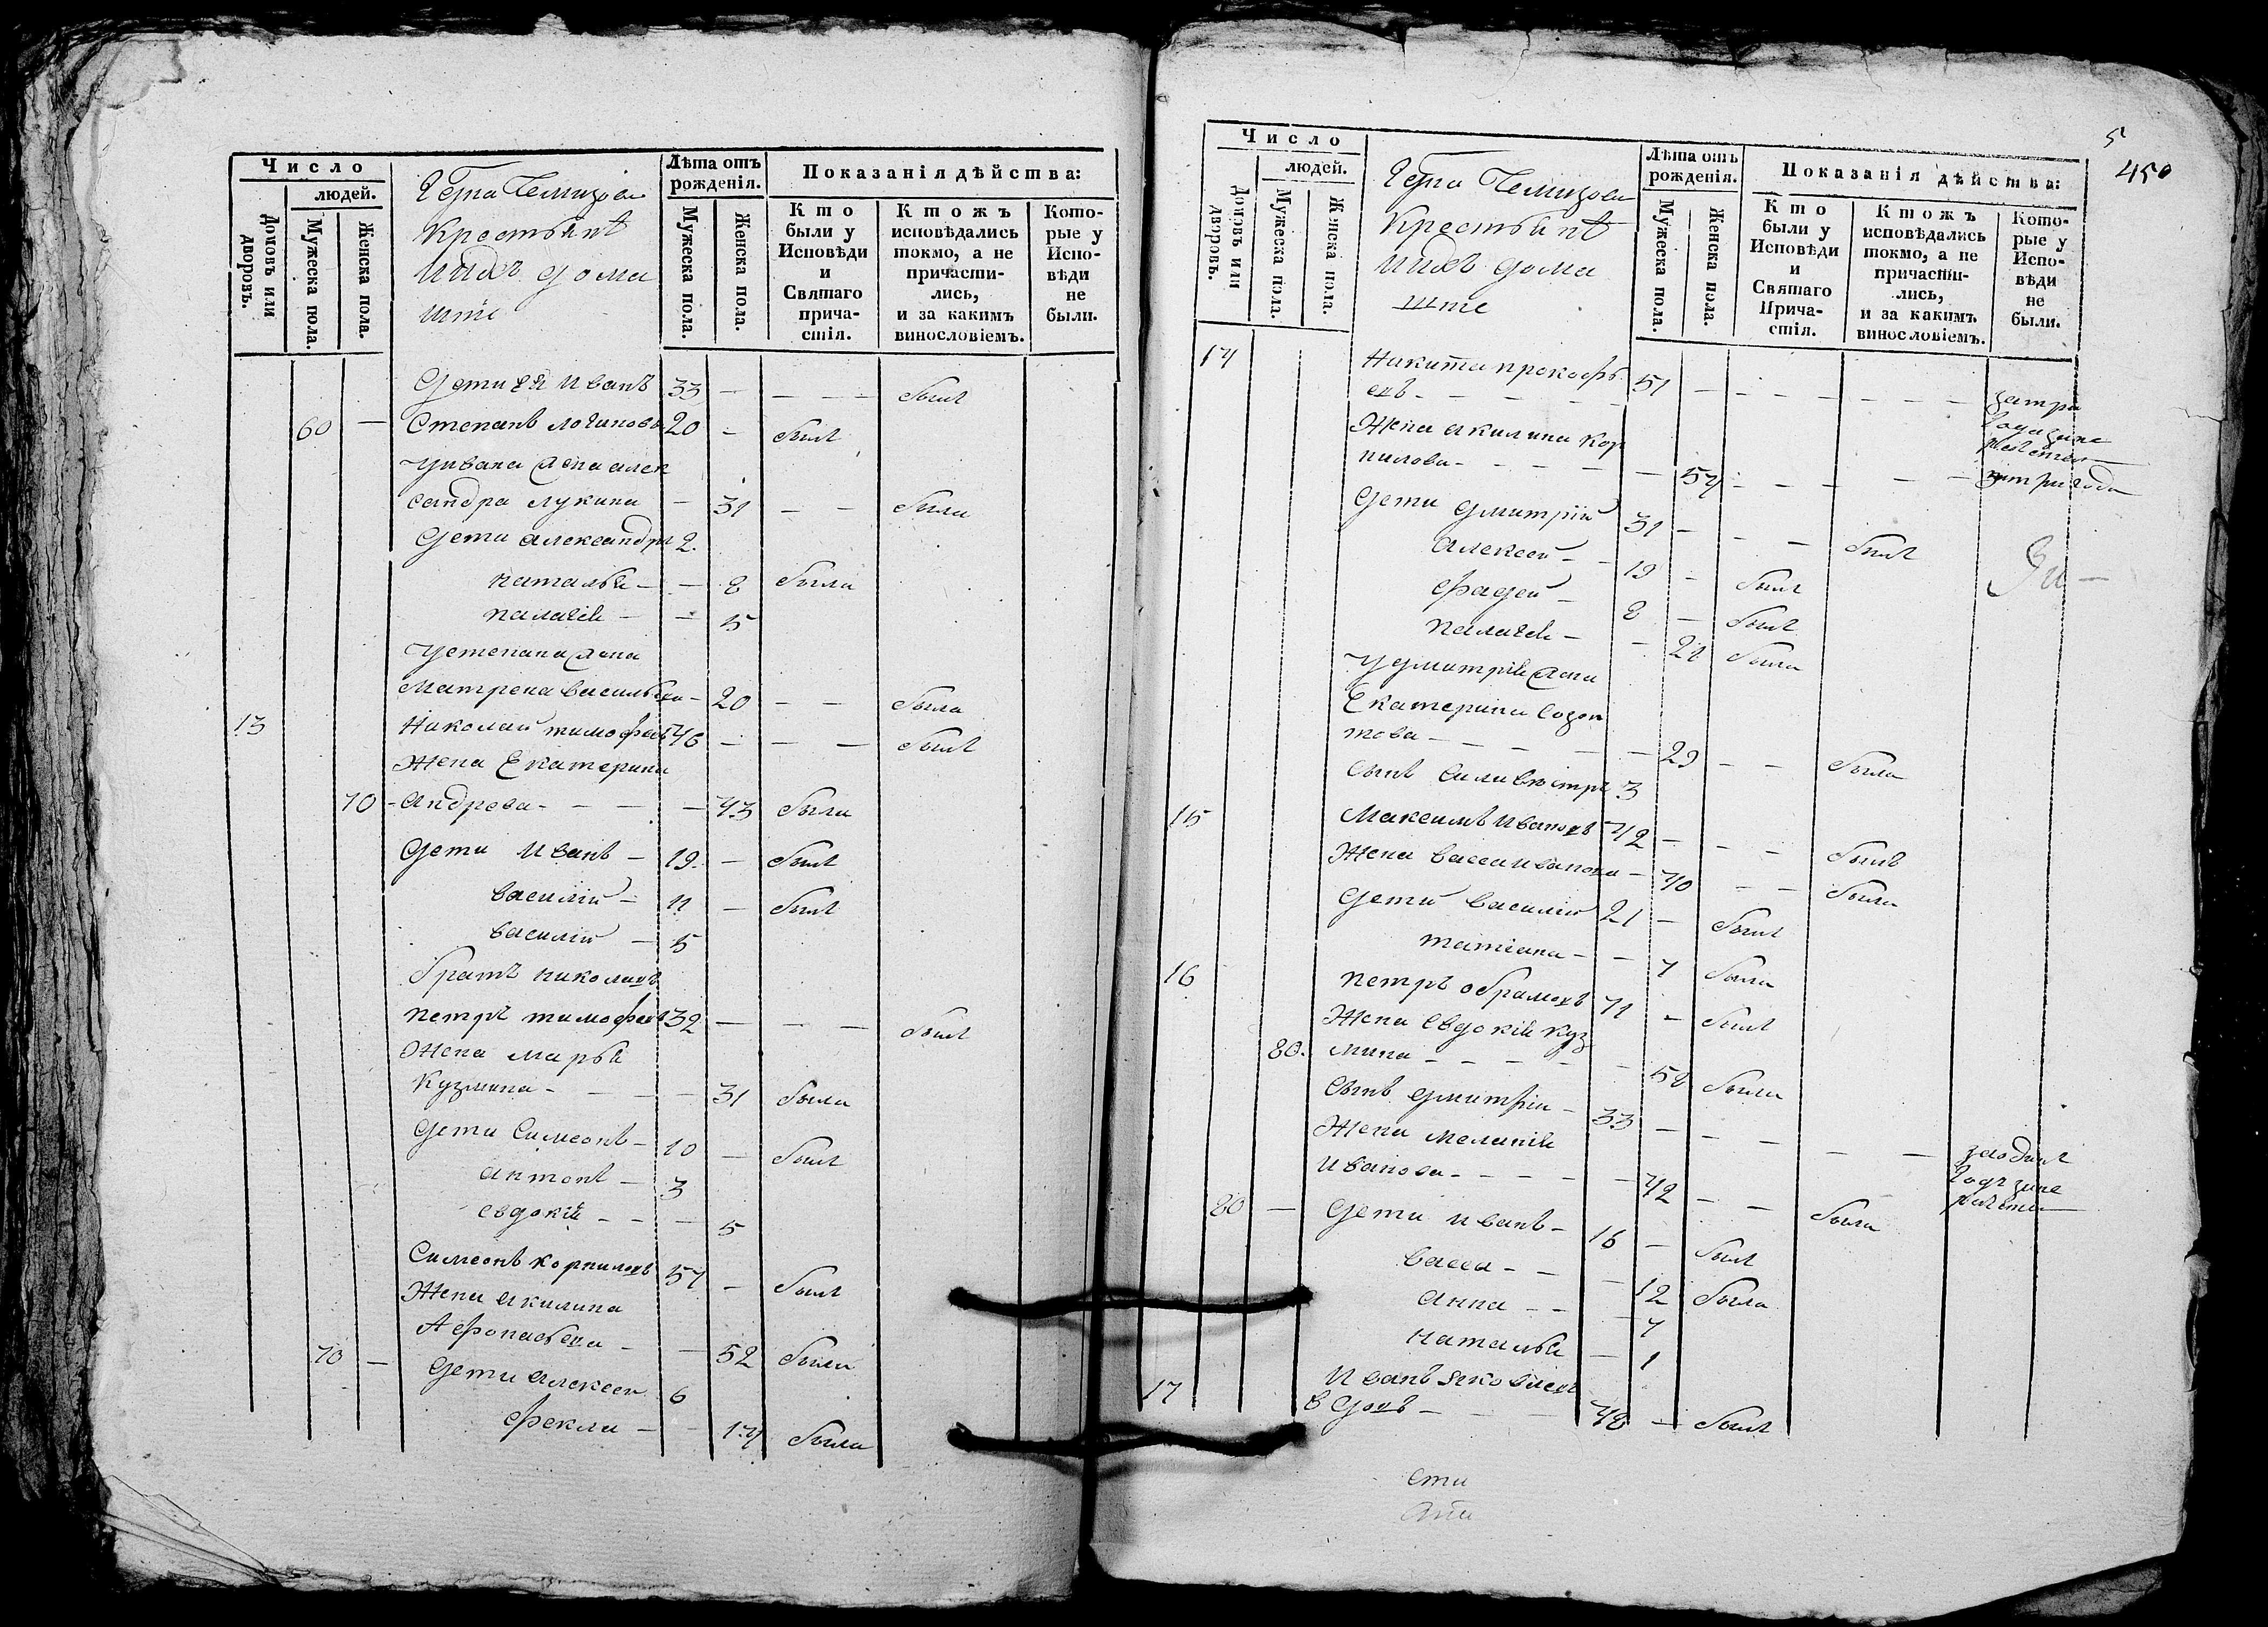 Число
людей.
Домовъ или дворовъ.
Мужеска пола.
Женска пола.
Крестьянѣ
и ихъ дома
шніе
Лѣта отъ рожденія.
Мужеска пола.
Женска пола.
Показанія дѣйства:
Кто были у Исповѣди и Святаго причастія.
Ктожъ исповѣдались токмо, а не причастились, и за какимъ винословіемъ.
Которые у Исповѣди не были.
Дети ея Иванъ 33 — — — былъ
60 — Степанъ логиновъ 20 — былъ
у ивана жена алек
сандра лукина — 31 — — была
Дети александръ 2.
наталья — — 8 была
палагея — — 5
у степана жена
Матрена васильева — 20 — — была
13 Николай тимофеевъ 46 — — — былъ
Жена Екатерина
70 — андреева — — — — 43 была
Дети Иванъ — 19. — былъ
василій — 11 — былъ
василій — 5
братъ николаевъ
петръ тимофеевъ 32 — — — былъ
Жена марья
Кузмина — — — — 31 была
Дети Симеонъ — 10 — былъ
антонъ — 3
евдокія — — — 5
Симеонъ корниловъ 57 — былъ
Жена акилина
Афонасьева — — 52 была
70 — Дети алексей 6
фекла — — 14 была
5
450
Число
людей.
Домовъ или дворовъ.
Мужеска пола.
Женска пола.
Крестьянѣ
и ихъ дома
шніе
Лѣта отъ рожденія.
Мужеска пола.
Женска пола.
Показанія дѣйства:
Кто были у Исповѣди и Святаго Причастія.
Ктожъ исповѣдались токмо, а не причастились, и за какимъ винословіемъ.
Которые у Исповѣди не были.
14 Никита прокофь
евъ — — — — — 51 — — — — — — — за три
года за не
Жена акилина кор
нилова — — — — — 54 — — — — — за три года
Дети Дмитрій 31 — — — былъ
алексей — — 19 — былъ
фадей — 8 — былъ
палагея — — 21 была
у дмитрія жена
Екатерина Созон
това — — — — — 29 — — была
сынъ Силивестръ 3
15 Максимъ Ивановъ 42 — — — былъ
Жена васса иванова — 40 — — была
Дети василій 21 — былъ
татіана — — 7 была
16 петръ обрамовъ 71 — былъ
Жена Евдокія куз
80. мина — — — — — 58 была
Сынъ дмитрій — 33 — — — — — за одинъ
годъ за не
Жена меланія
Иванова — — — — — 42 — — была
80 — Дети иванъ — 16 — былъ
васса — — — 12 была
анна — — — 7
наталья — 1
17 Иванъ яковлевъ
вдовъ — — — 48 — былъ